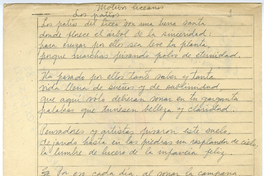 Motivo liceano
Los patios
Los patios del liceo son una tierra santa
donde florece el árbol de la sinceridad:
para cruzar por ellos sea leve la planta,
porque marchas pisando polvo de eternidad.
Ha pasado por ellos tanto saber y tanta
vida llena de sueños y de sublimidad,
que aquí solo debieran sonar en la garganta
palabras que tuviesen belleza y claridad.
Pensadores y artistas pisaron este suelo,
dejando hasta en las piedras un resplandor de cielo,
la lumbre de lucero de la infancia feliz.
en cada día, al sonar la campana